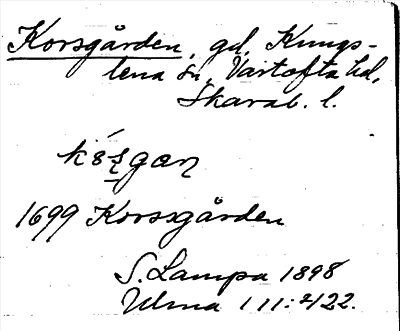 Korsgården, gd, Kungs-
lena sn, Vartofta hd,
Skarab. l.
1699 Korssgården
S. Lampa 1898
Ulma 111:422.